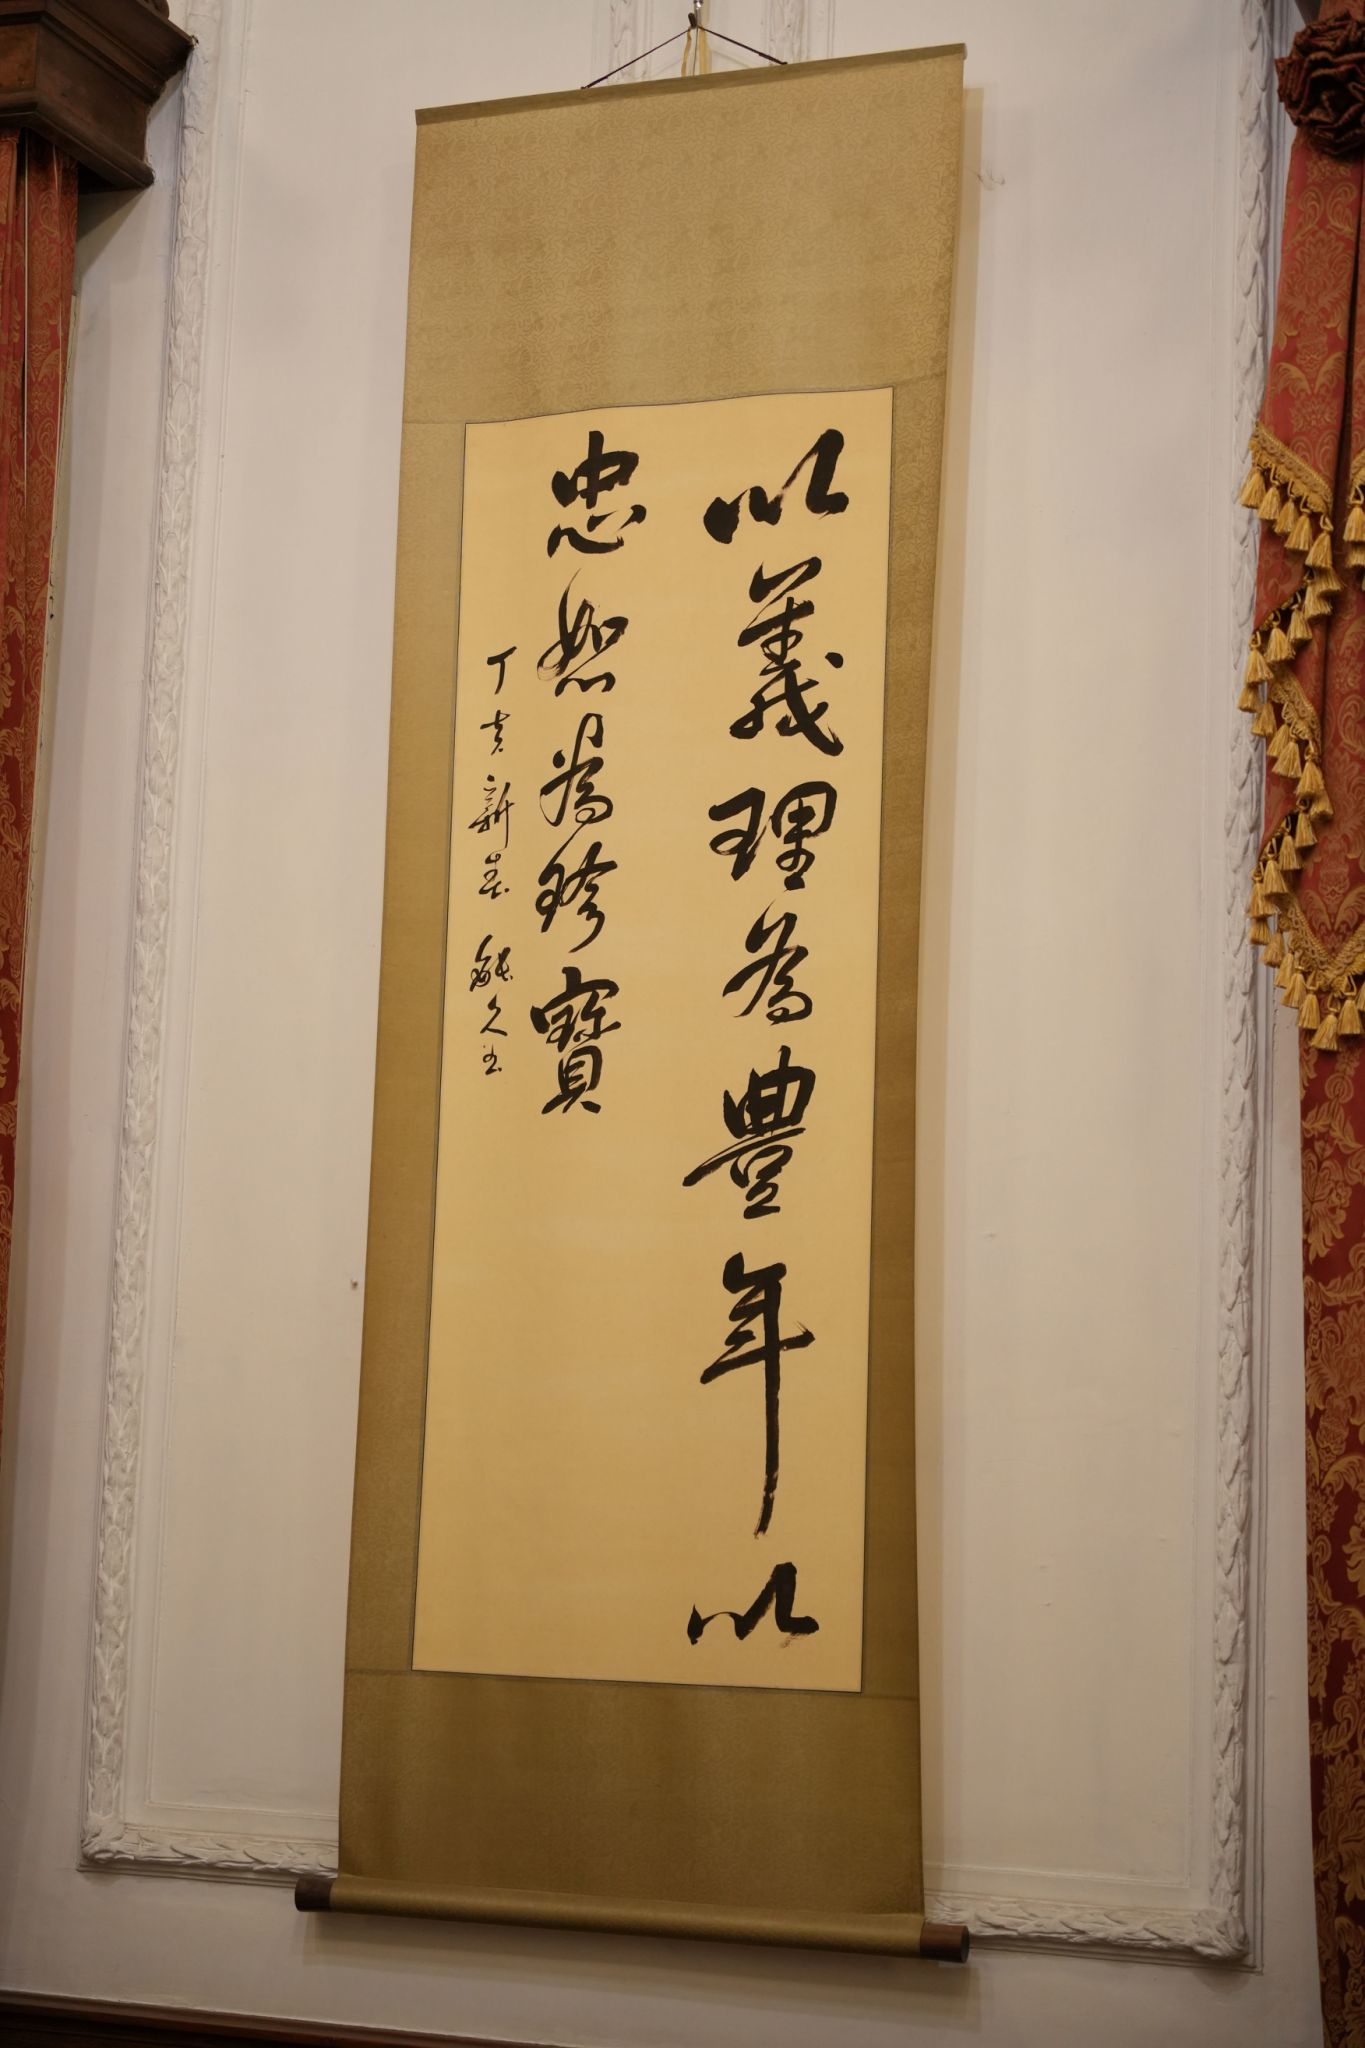 以義理為豊年以
忠恕為珍寶
丁亥新春 能久書